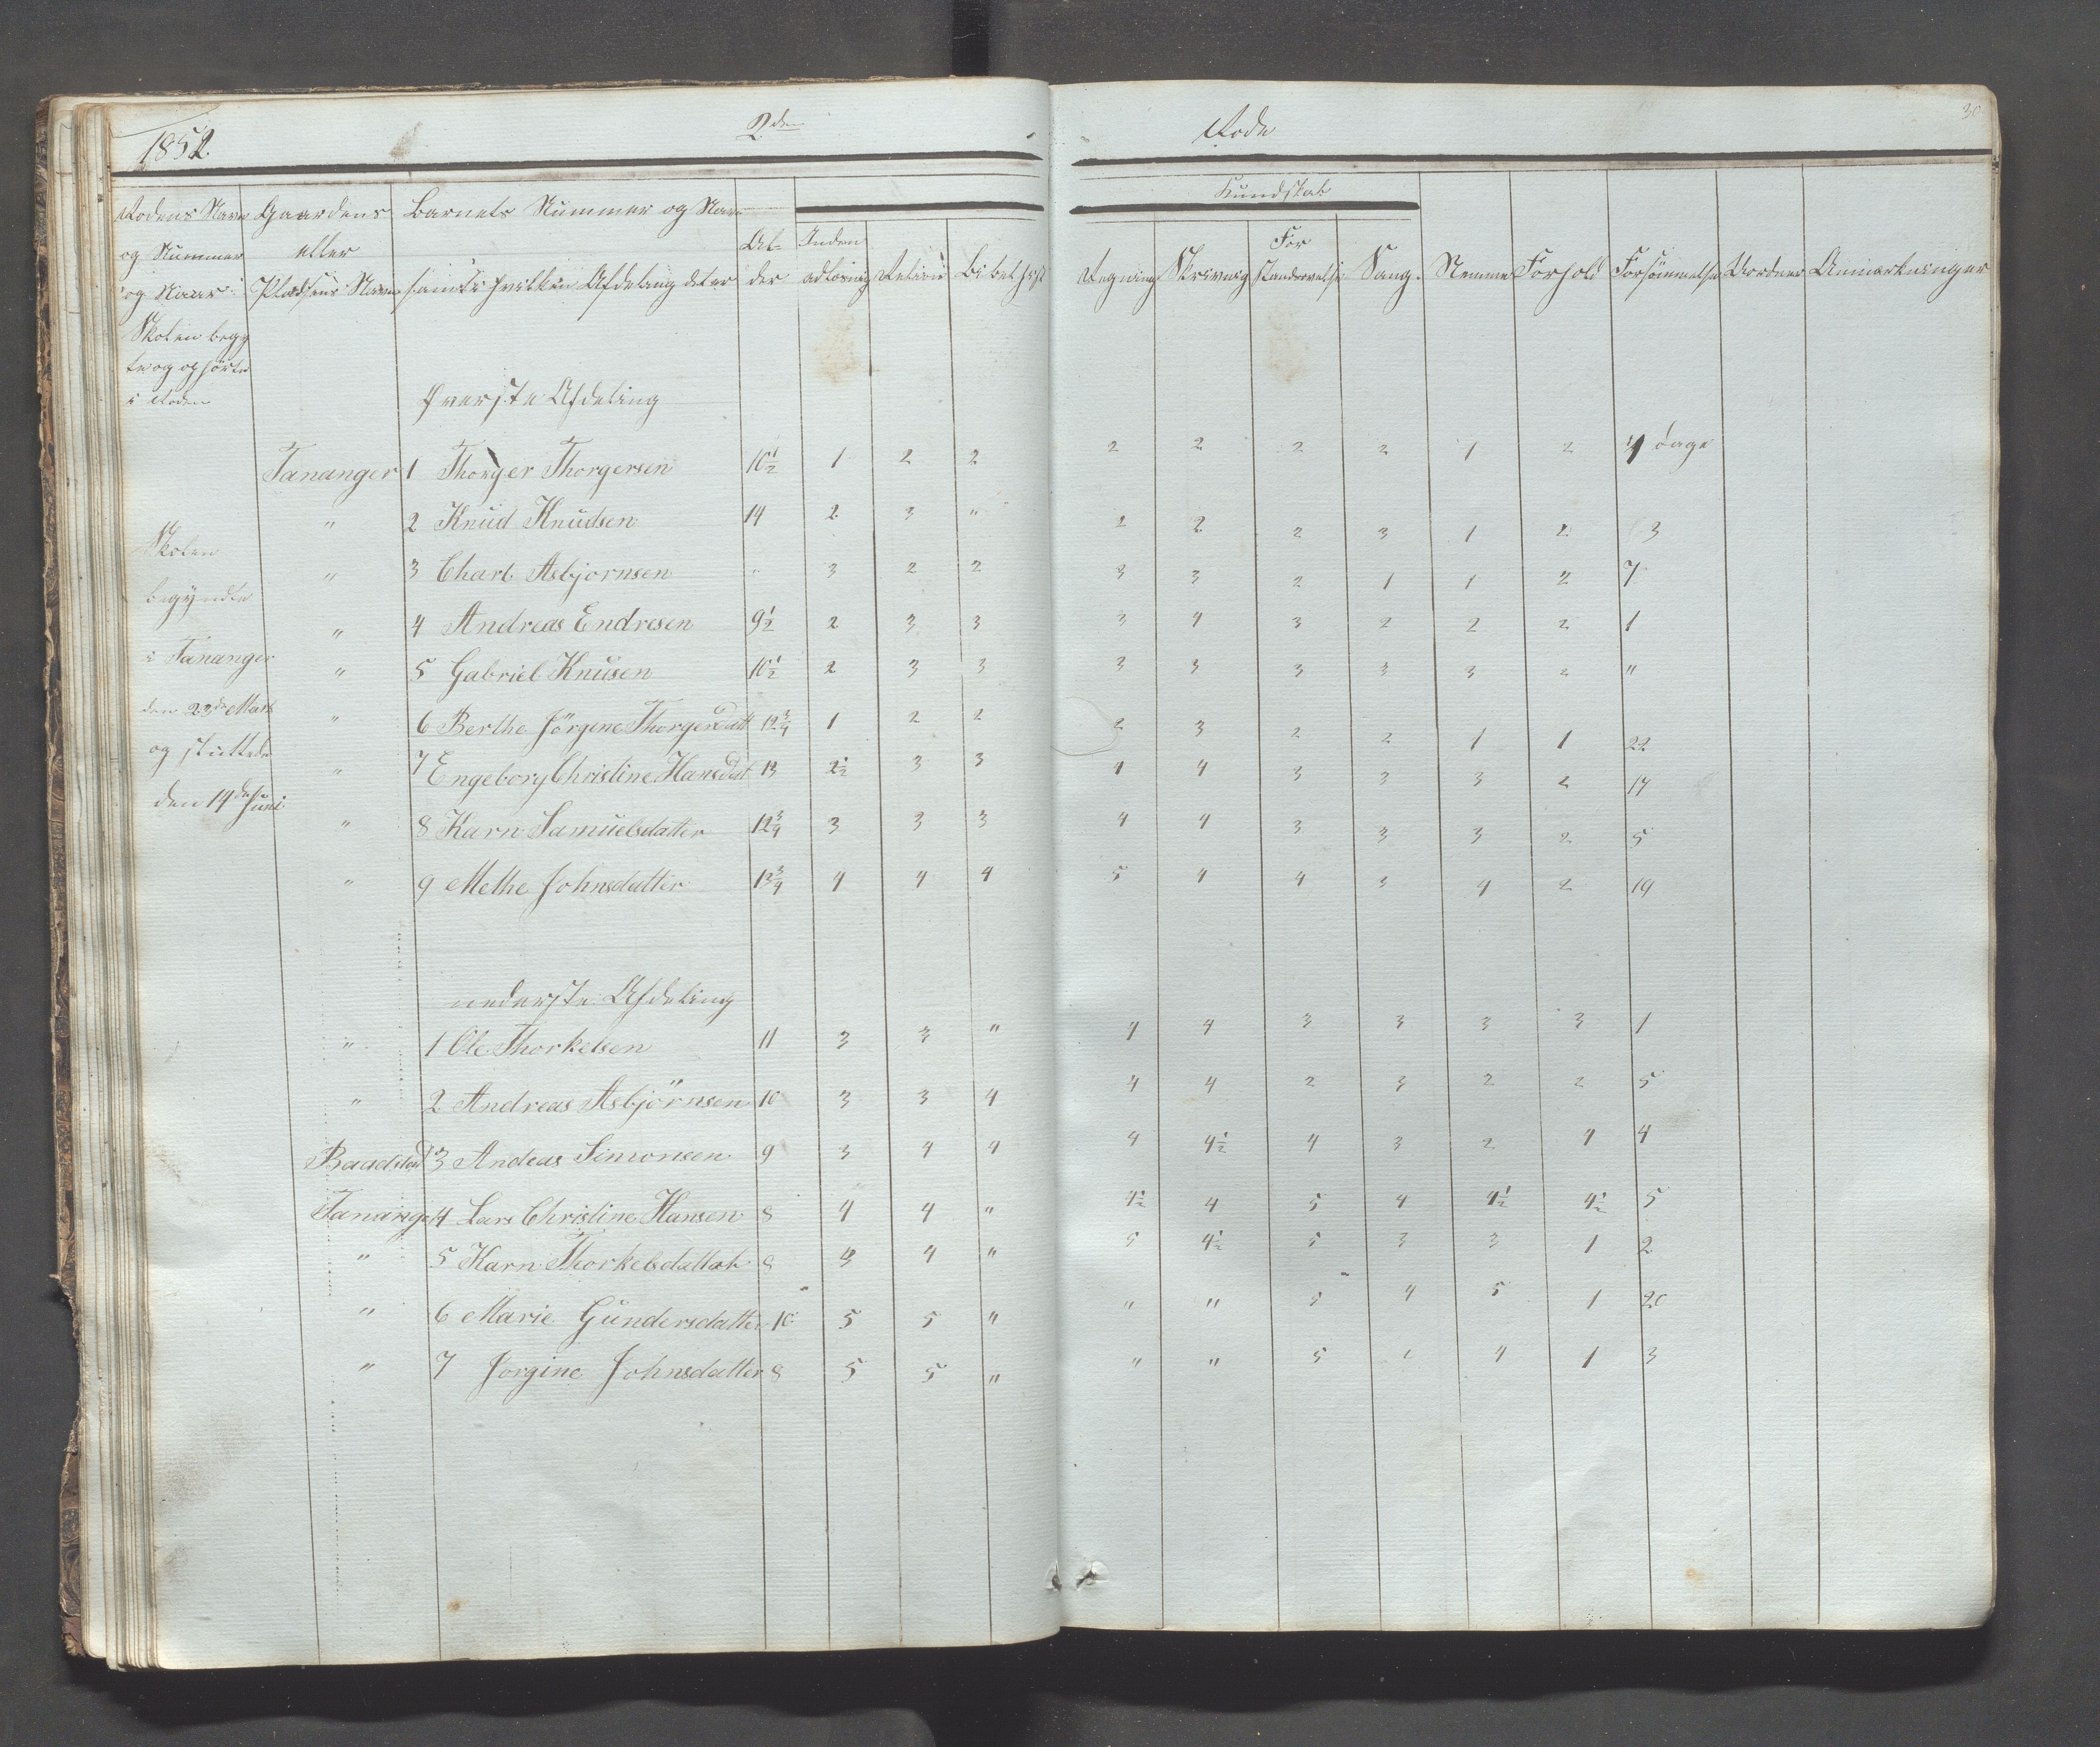 1852. 2den Rode 30
Kundskab
Rodens Navn og Nummer og Naar Skolen begyndte og ophørte i Roden
Gaardens eller Pladsens Navn
Barnets Nummer og Navn samt i hvilken Afdeling det er
Alder
Indenadlæsning Religion Bibelhist Regning Skrivning Forstandsøvelse Sang. Nemme Forhold Forsømmelse Vordner Anmærkninger
øverste Afdeling
Tananger 1 Thorger Thorgersen 10½ 1 2 2 2 2 2 2 1 2 4 dage
" 2 Knud Knudsen 14 2 3 " 2 2 2 3 1 2 3
" 3 Charl Asbjornsen " 3 2 2 3 3 2 1 1 2 7
" 4 Andreas Endresen 9½ 2 3 3 3 4 3 2 2 2 1
" 5 Gabriel Knusen 10½ 2 3 3 3 3 3 3 3 2 "
" 6 Berthe Jörgine Thorgersdatt 12¾ 1 2 2 2 3 2 2 1 1 22
" 7 Engeborg Christine Hansdat 13 2½ 3 3 4 4 3 3 3 2 17
" 8 Karn Samuelsdatter 12¾ 3 3 3 4 4 3 3 3 2 5
" 9 Methe Johnsdatter 13¾ 4 4 4 5 4 4 3 4 2 19
Skolen
begyndte
i Tananger
den 23de Marts
og sluttede
den 14de Juni
nederste Afdeling
" 1 Ole Thorkelsen 11 3 3 " 4 4 3 3 3 3 1
" 2 Andreas Asbjörnsen 10 3 3 4 4 4 2 3 2 2 5
Baadstad 3 Andeas Simonsen 9 3 4 4 4 4½ 4 3 2 4 4
Tananger 4 Lars Christine Hansen 8 4 4 " 4½ 4 5 4 4½ 4½ 5
" 5 Karn Thorkelsdattar 8 3 4 " 5 4½ 5 3 3 1 2
" 6 Marie Gundersdatter 10 5 5 " " " 5 4 5 1 20
" 7 Jorgine Johnsdatter 8 5 5 " " " 5 4 1 3